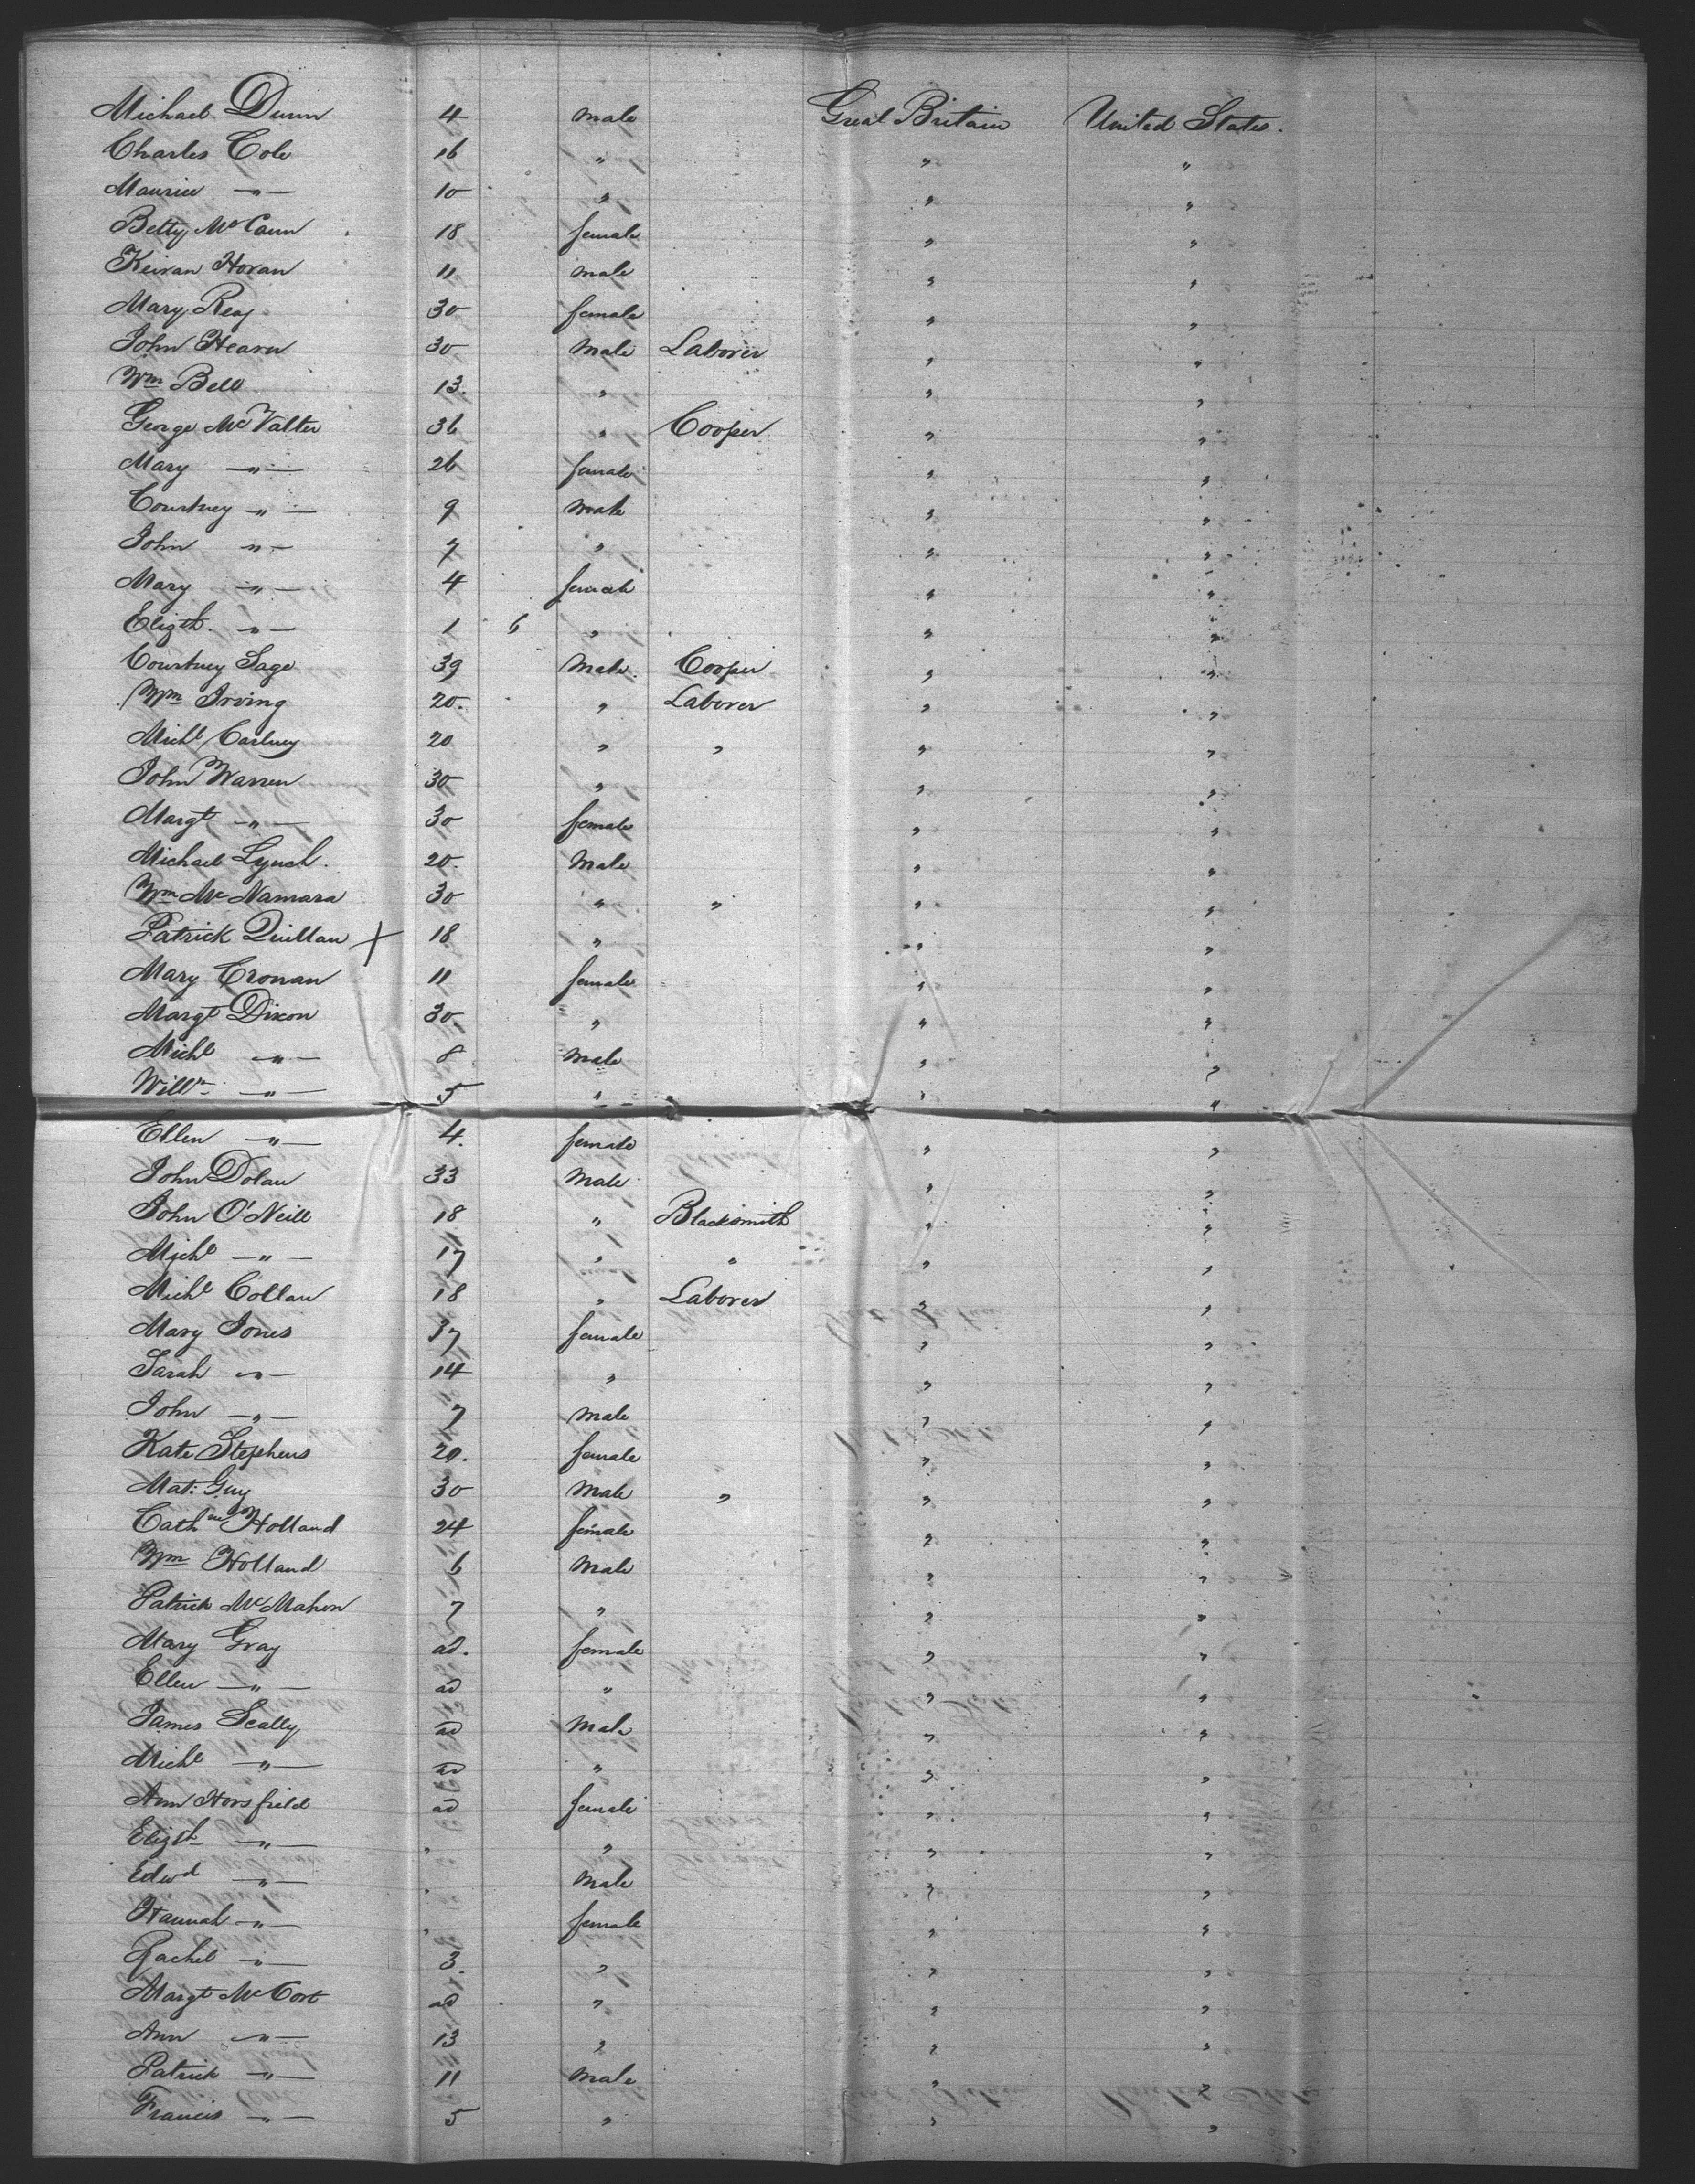 Michael Dunn 4 male Great Britain United States.
Charles Cole 16 " " "
Maurice —"— 10 " " "
Betty McCann 18 female " "
Keiran Horan 11 male " "
Mary Reay 30 female " "
John Hearn 30 Male Laborer " "
Wm Bell 13. " " "
George McValter 36 " Cooper " "
Mary —"— 26 female " "
Courtney —"— 9 male " "
John —"— 7 " " "
Mary —"— 4 female " "
Eligth. —"— 1 6 " " "
Courtney Sage 39 Male. Cooper " "
Wm Irving 20. " Laborer " "
Michl Cartney 20 " " " "
John Warren 30 " " "
Margt —"— 30 female " "
Michael Lynch. 20. Male " "
Wm McNamara 30 " " " "
Patrick Quillan X 18 " " "
Mary Cronan 11 female " "
Margt Dixon 30. " " "
Michl —"— 8 male " "
Willm —"— 5 " " "
Ellen —"— 4. female " "
John Dolan 33 Male " "
John O'Neill 18 " Blacksmith " "
Michl —"— 17 " " " "
Michl Collan 18 " Laborer " "
Mary Jones 37 female " "
Sarah —"— 14 " " "
John —"— 7 male " "
Kate Stephens 20. female " "
Mat: Guy 30 Male " " "
Cathne Holland 24 female " "
Wm Holland 6 Male " "
Patrick McMahon 7 " " "
Mary Gray ad. female " "
Ellen —"— ad " " "
James Scally ad Male " "
Michl —"— ad " " "
Ann Horsfield ad female " "
Eligth —"— " " " "
Edwd —"— " Male " "
Hannah —"— " female " "
Rachel —"— 3. " " "
Margt McCort ad " " "
Ann —"— 13 " " "
Patrick —"— 11 Male " "
Francis —"— 5 " " "